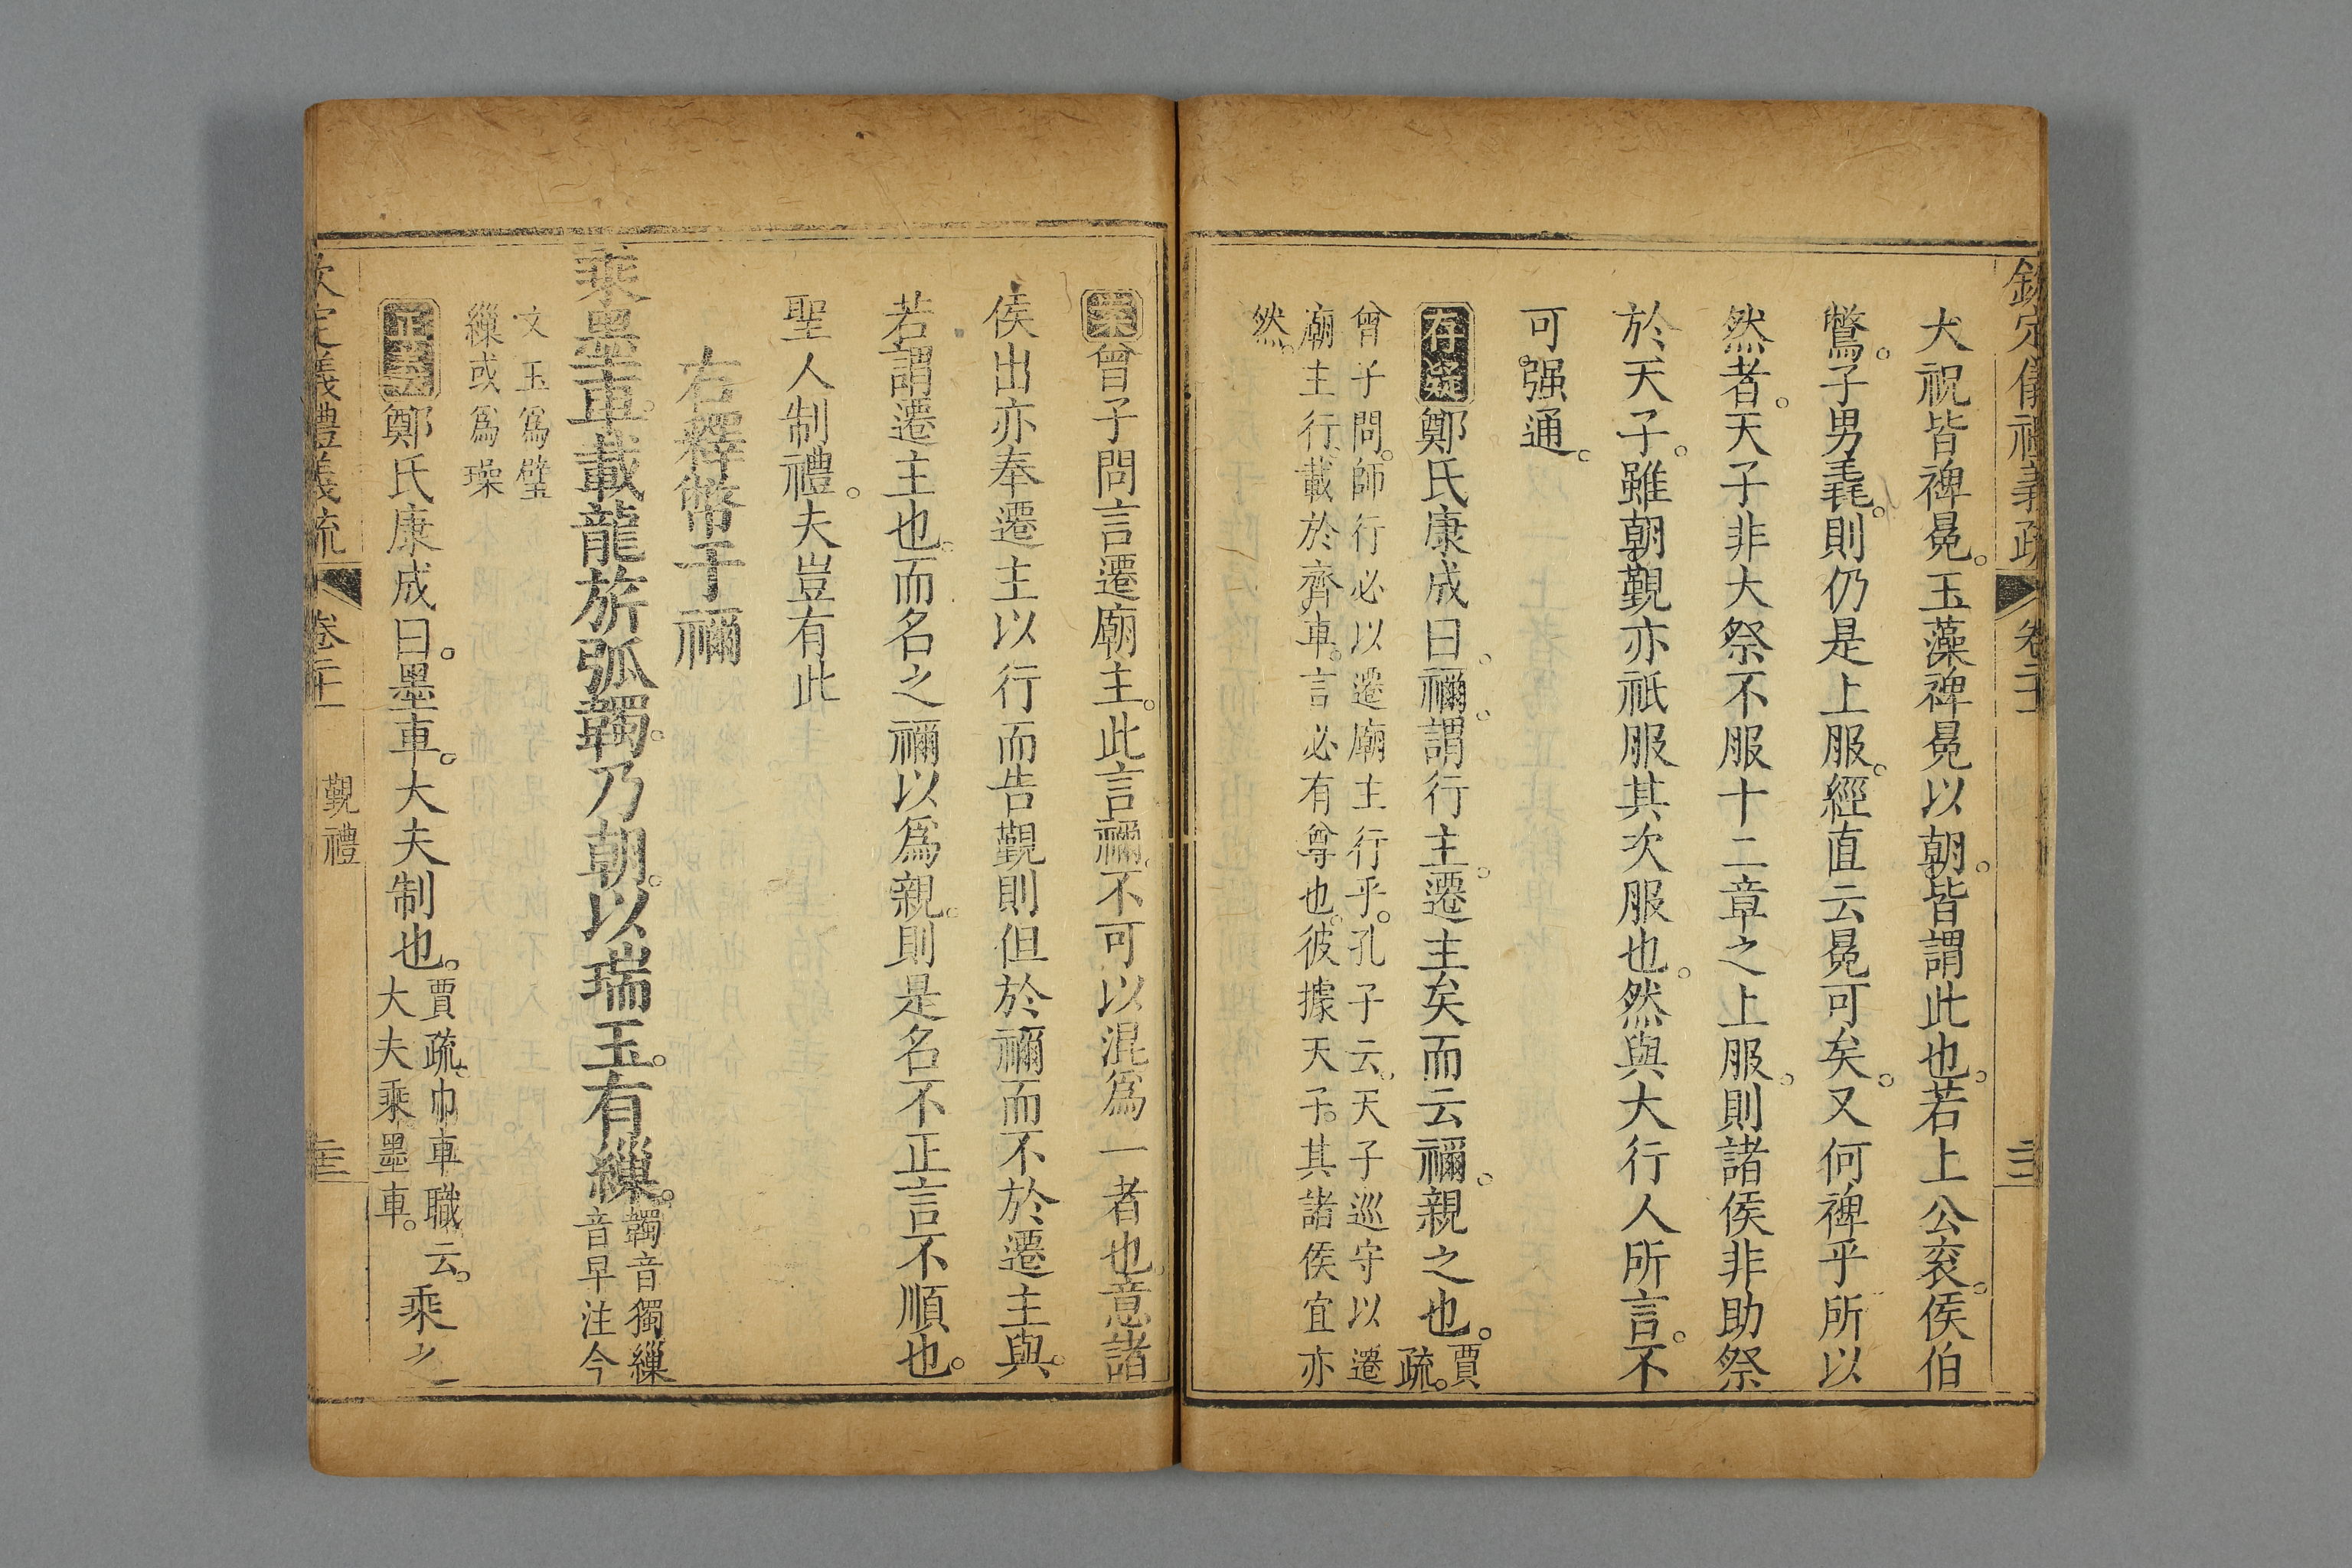 欽定儀禮義疏 卷二十
大祝皆裨冕。玉藻裨冕以朝。皆謂此也。若上公袞。侯伯
鷩。子男毳。則仍是上服。經直云冕可矣。又何裨乎所以
然者。天子非大祭不服十二章之上服。則諸侯非助祭
於天子。雖朝覲亦祇服其次服也。然與大行人所言。不
可强通。
存疑鄭氏康成曰。禰。謂行主。遷主矣而云禰。親之也。賈疏。
曾子問。師行必以遷廟主行乎。孔子云。天子巡守以遷
廟主行。載於齊車。言必有尊也。彼據天子。其諸侯宜亦
然。
案曾子問言遷廟主。此言禰。不可以混爲一者也。意諸
侯出亦奉遷主以行而告覲則但於禰而不於遷主與。
若謂遷主也。而名之禰以爲親。則是名不正言不順也。
聖人制禮。夫豈有此
右釋幣于禰
乘墨車。載龍旂弧韣。乃朝。以瑞玉。有繅。韣音獨繅
音早注今
文玉爲璧
繅或爲璪
正義鄭氏康成曰。墨車。大夫制也。賈疏。巾車職云。
大夫乘墨車。乘之
欽定儀禮義疏 卷二十 覲禮